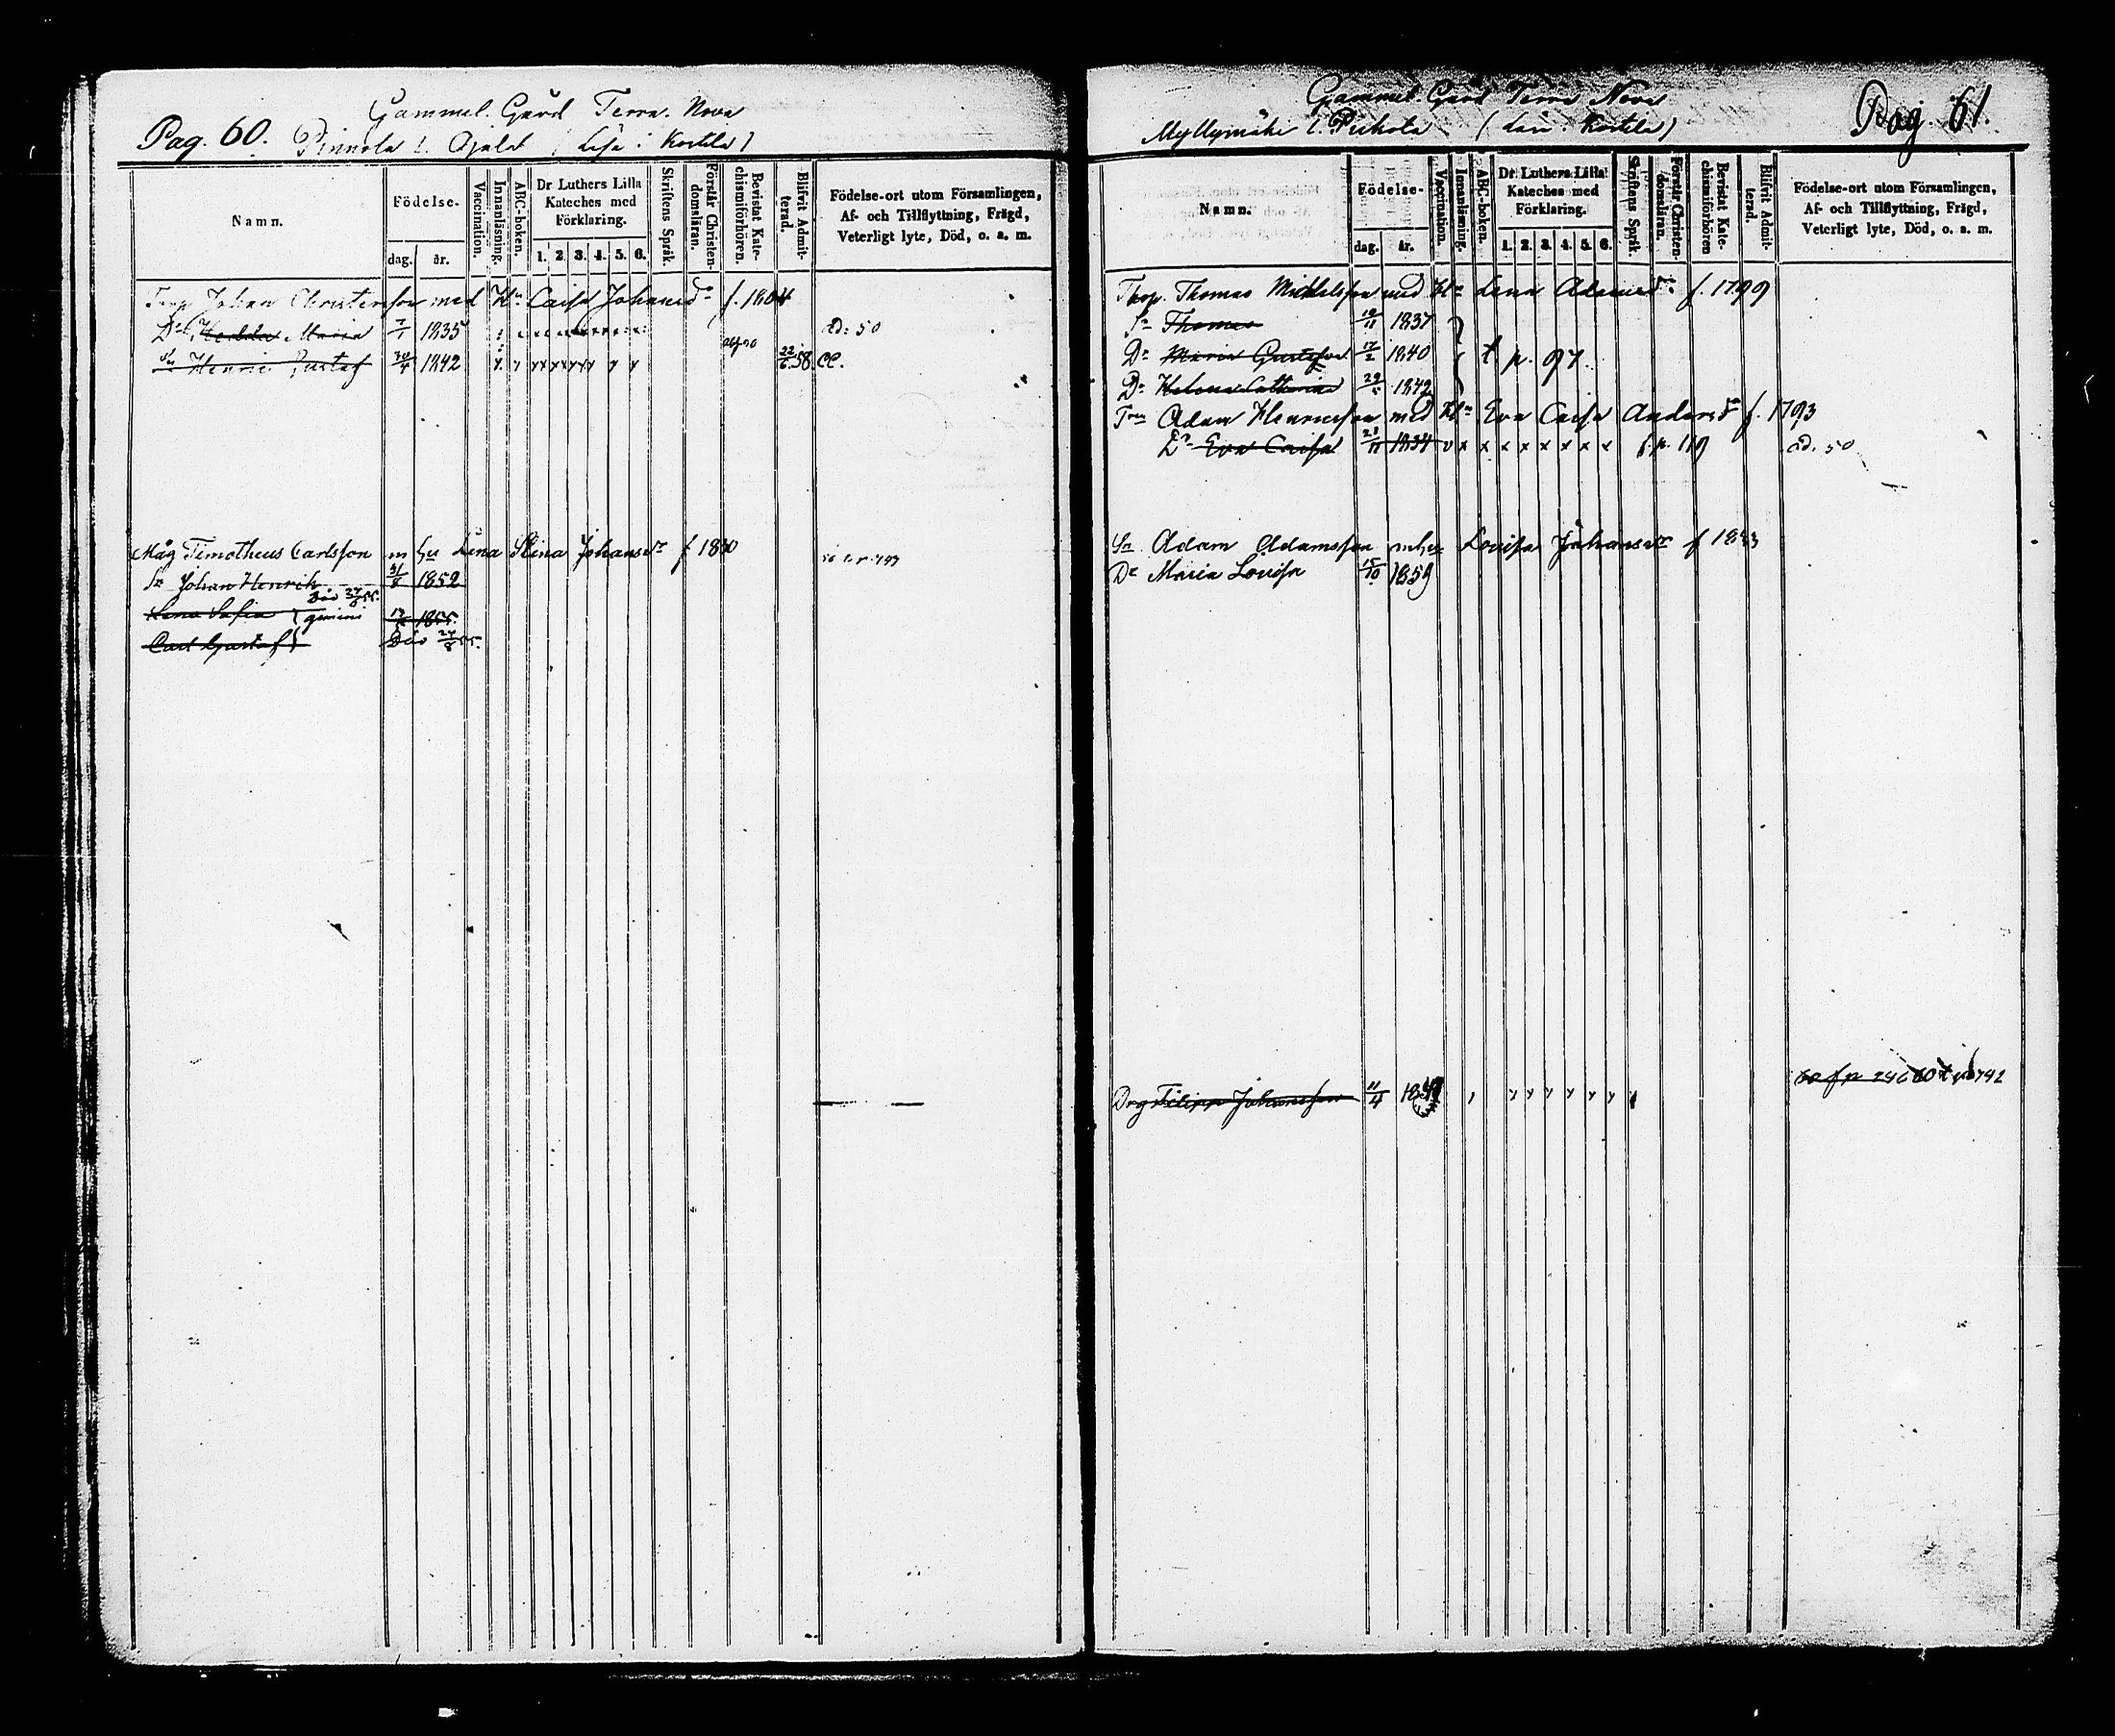 Gammel Gård Terra Nova
Pag. 60. Pinnola l. Ojala (Läse i Kostila)
Namn.
Födelse.
dag. år.
Vaccination.
Innanläsning.
ABC-boken.
Dr Luthers Lilla Kateches med Förklaring.
1. 2. 3. 4. 5. 6.
Skriftens Språk.
Förstår Christendomsläran.
Bevistat Katechismiförhören.
Blifvit Admitterad.
Födelse-ort utom Församlingen, Af- och Tillflyttning, Frägd, Veterligt lyte, Död, o. a. m.
Johan Christersson med H:u Caisa Johansdr f. 1804
Dr Hedda Maria 7/1 1835 ad: 50
Sn Henric Gustaf 30/4 1842 22/6 58.
Måg Timotheus Carlsson m hu Lena Stina Johansdr f 1830
Sn Johan Henrik 31/8 1852
Lena Sofia } gemini 1855.
Carl Gustaf } Död 24/8 55.
Gammel Gård Terra Nova
Myllymäki l. Pukola (Läse i Kostila) Pag. 61.
Namn.
Födelse-
dag. år.
Vaccination.
Innanläsning.
ABC-boken.
Dr Luthers Lilla Kateches med Förklaring.
1. 2. 3. 4. 5. 6.
Skriftens Språk.
Förstår Christendomsläran.
Bevistat Katechismiförhören
Blifvit Admitterad.
Födelse-ort utom Församlingen, Af- och Tillflyttning, Frägd, Veterligt lyte, Död, o. a. m.
Thomas Michelsson med H:u Lena Adamsdr f. 1799
Sn Thomas 1837
Dr Maria Gustafva 17/2 1840 t p. 97.
Dr Helena Catharina 1842
Adam Henricsson med H:u Eva Caisa Andersdr f. 1793
Dr Eva Caisa 1834 f. p. 119 ad. 50
Sn Adam Adamsson m hu Lovisa Johansdr f 1833
Dr Maria Lovisa 15/10 1859
Drg Filipp Johansson 11/4